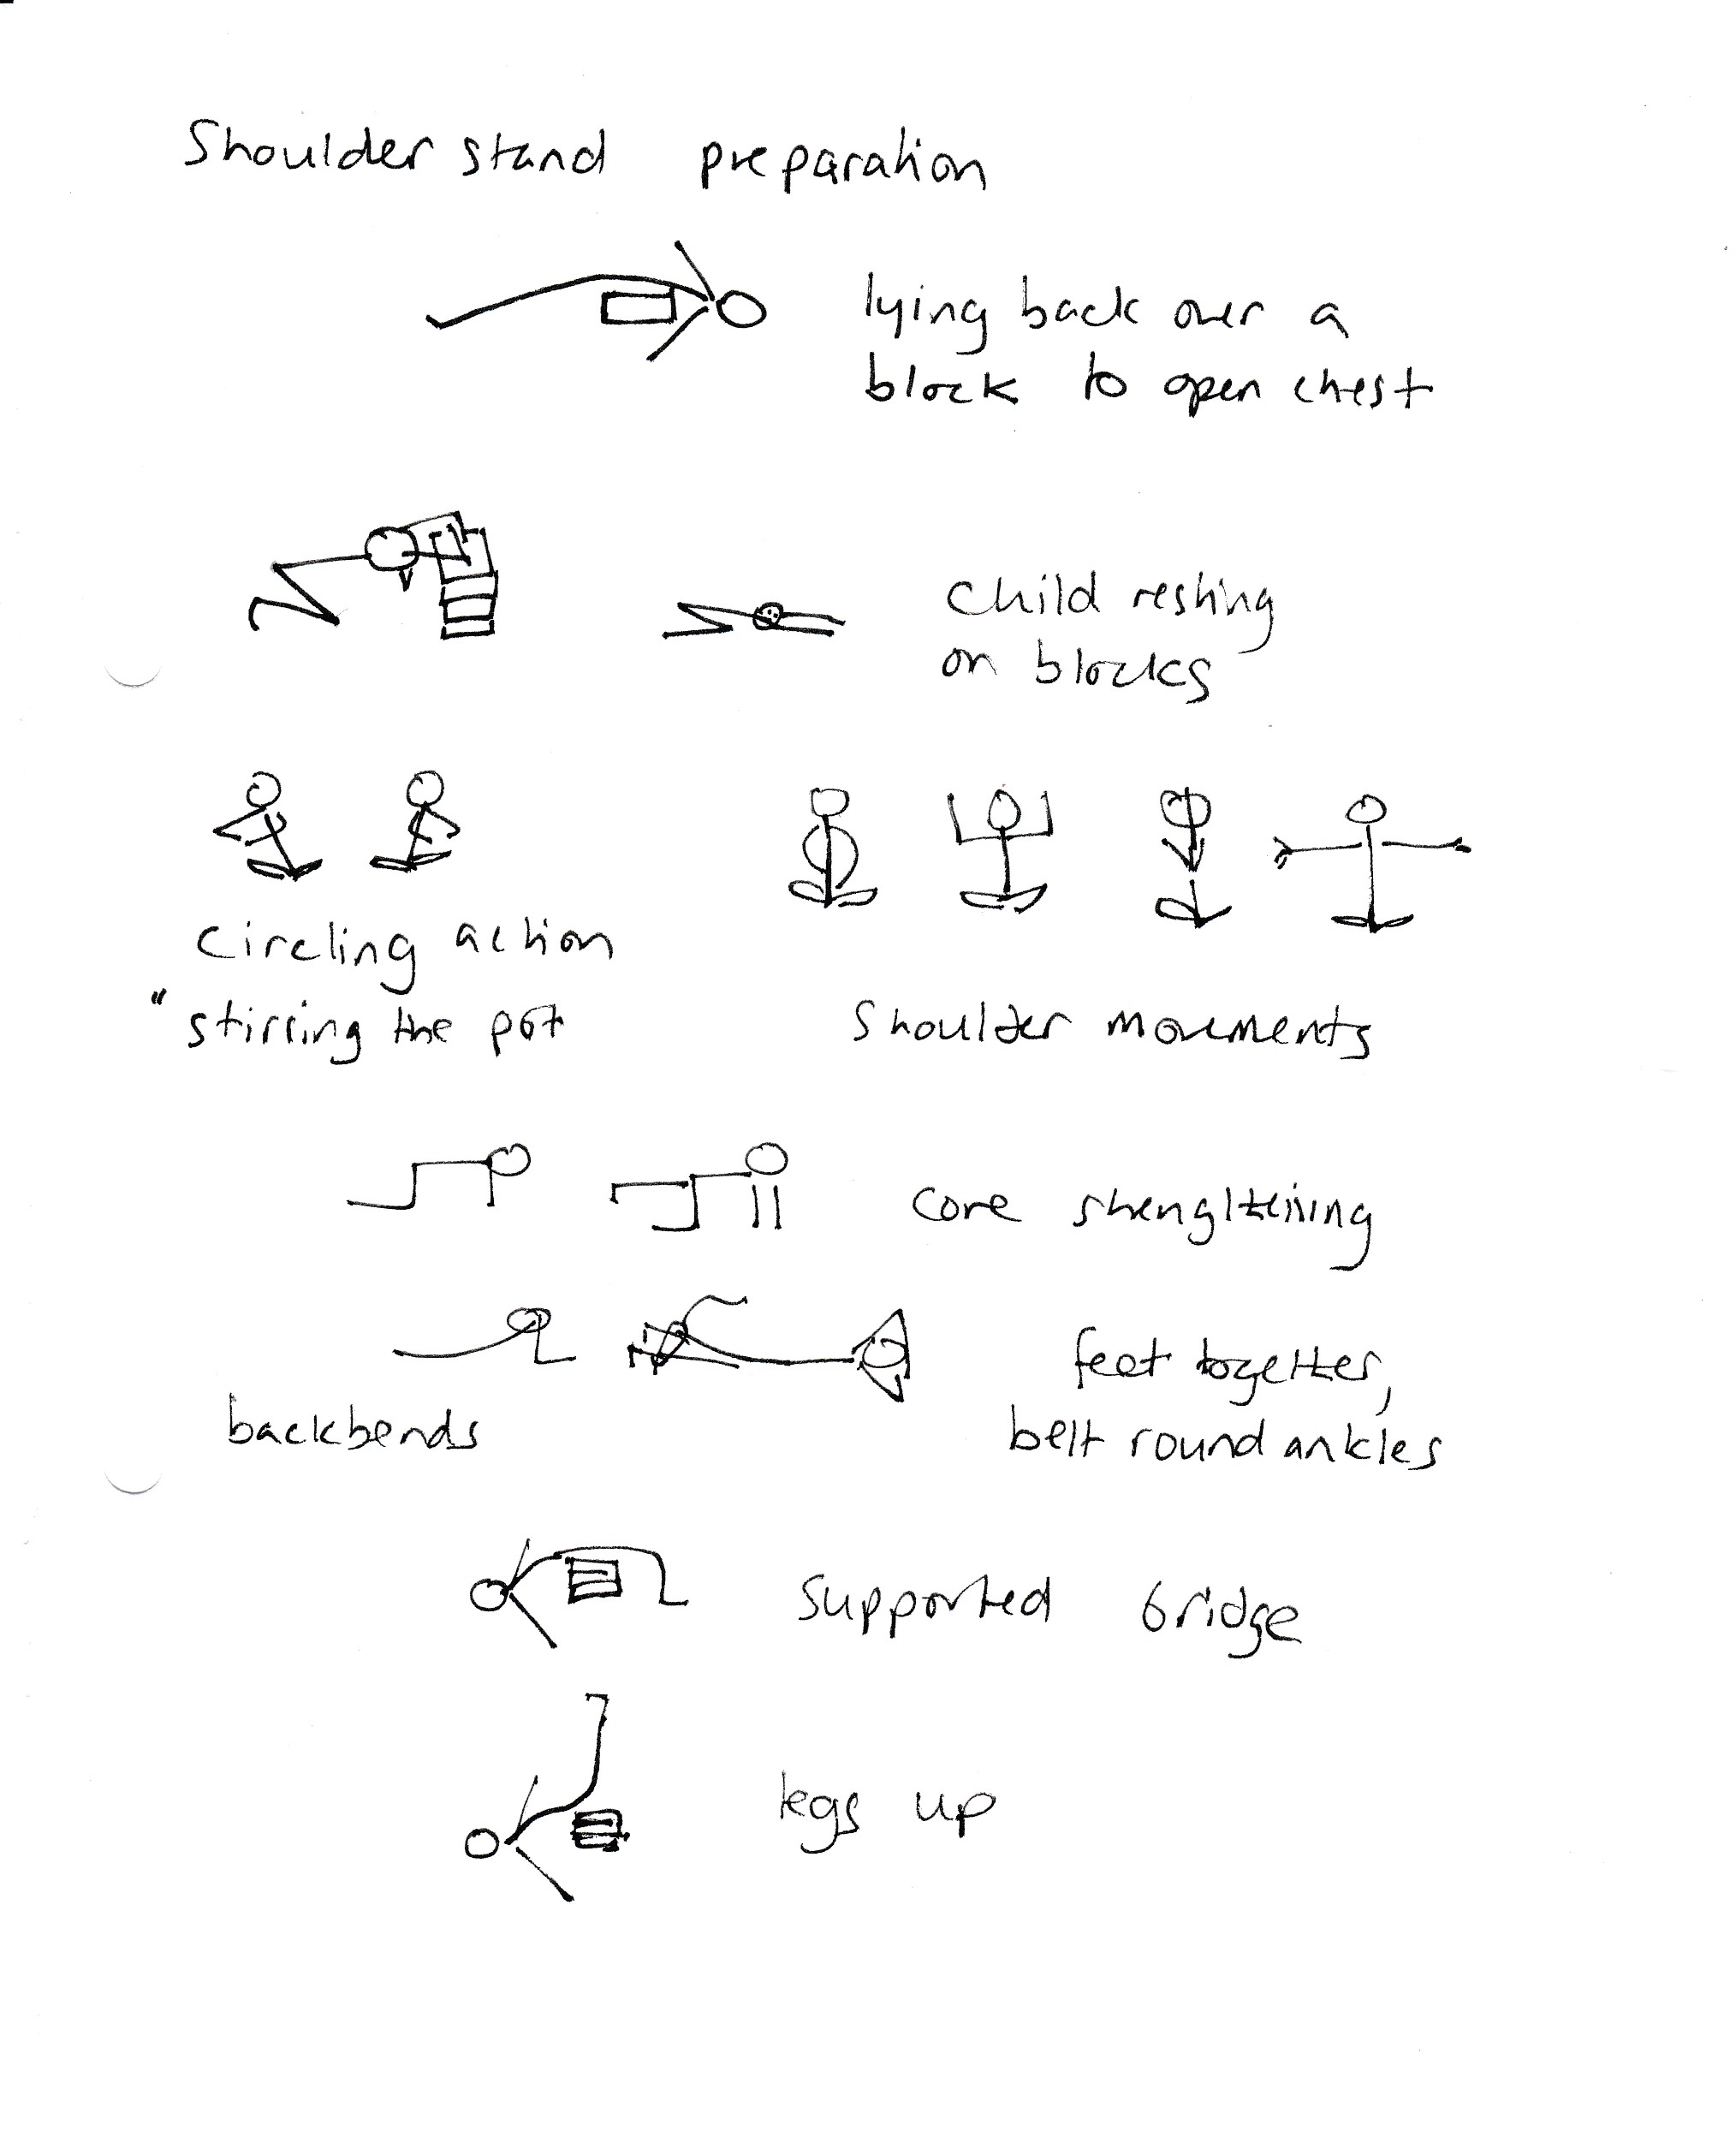 Shoulder stand preparation
lying back over a
block to open chest
Child resting
on blocks
circling action
"stirring the pot
Shoulder movements
core strengthening
feet together,
backbends
belt round ankles
supported bridge
legs up